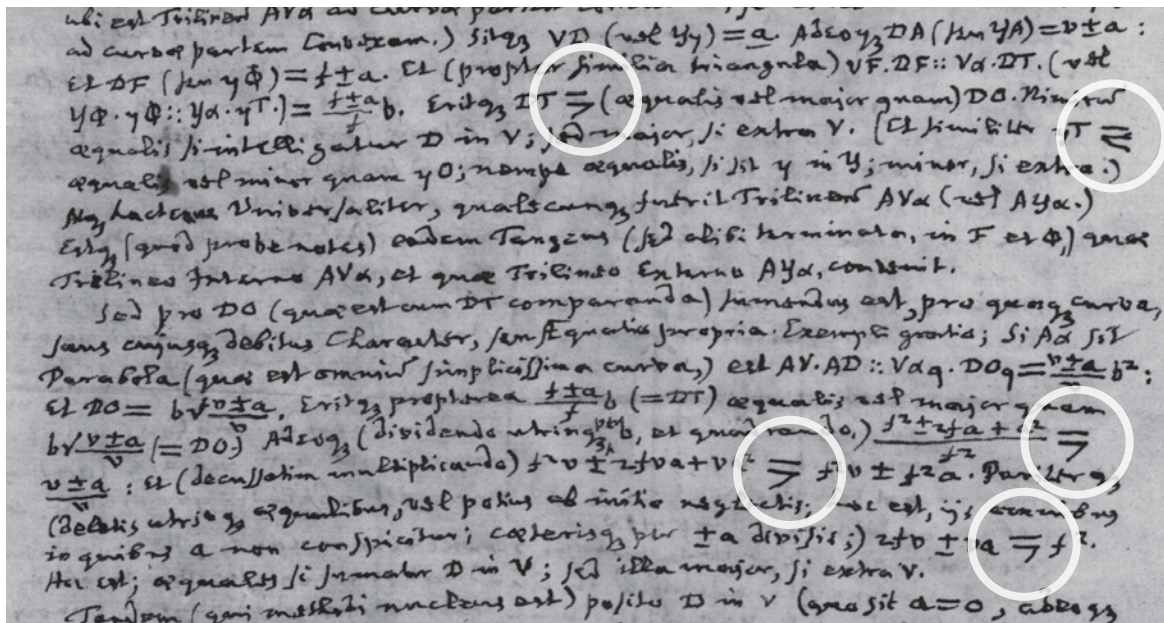 ubi est Trilineū AVα ad curvæ partem
ad curvæ partem Convexam.) Sitqꝫ VD (vel Yy) = a. Adeoqꝫ DA (seu yA) = v±a :
Et DF (seu yΦ) = f±a. Et (propter similia triangula) VF. DF :: Vα. DT. (vel
YΦ. yΦ :: Yα. yT.) = f±a/f b. Eritqꝫ DT ⩾ (æqualis vel major quam) DO. Nimirū
æqualis si intelligatur D in V; sed major, si extra V. (Et similiter yT ⩽
æqualis vel minor quam yO; nempe æqualis, si sit y in Y; minor, si extra.)
Atqꝫ hactenus Universaliter, qualecunqꝫ fuerit Trilineū AVα (vel AYα.)
Estqꝫ (quod probe notes) eadem Tangens (sed alibi terminata, in F et Φ,) quæ
Trilineo Interno AVα, et quæ Trilineo Externo AYα, convenit.
Sed pro DO (quæ est cum DT comparanda) sumendus est, pro quaqꝫ curva,
suus cujusqꝫ debitus Character, seu Æquatio propria. Exempli gratia; Si Aα sit
Parabola (quæ est omniū simplicissima curva,) est AV. AD :: Vαq. DOq = v±a/v b² :
Et DO = b√v±a/v. Eritqꝫ propterea f±a/f b (=DT) æqualis vel major quam
b√v±a/v (=DO.) Adeoqꝫ (dividendo utrinqꝫ per b, et quadrando,) f²±2fa+a²/f² ⩾
v±a/v : Et (decussatim multiplicando) f²v ± 2fva + va² ⩾ f²v ± f²a. Pariterqꝫ
(deletis utrinqꝫ æqualibus, vel potius ab initio neglectis; hoc est, ijs omnibus
in quibus a non conspicitur; cæterisqꝫ per ±a divisis;) 2fv ± va ⩾ f².
Hoc est; æqualis si sumatur D in V; sed illa major, si extra V.
Tandem (qui methodi nucleus est) posito D in V (quo sit a=0, adeoqꝫ